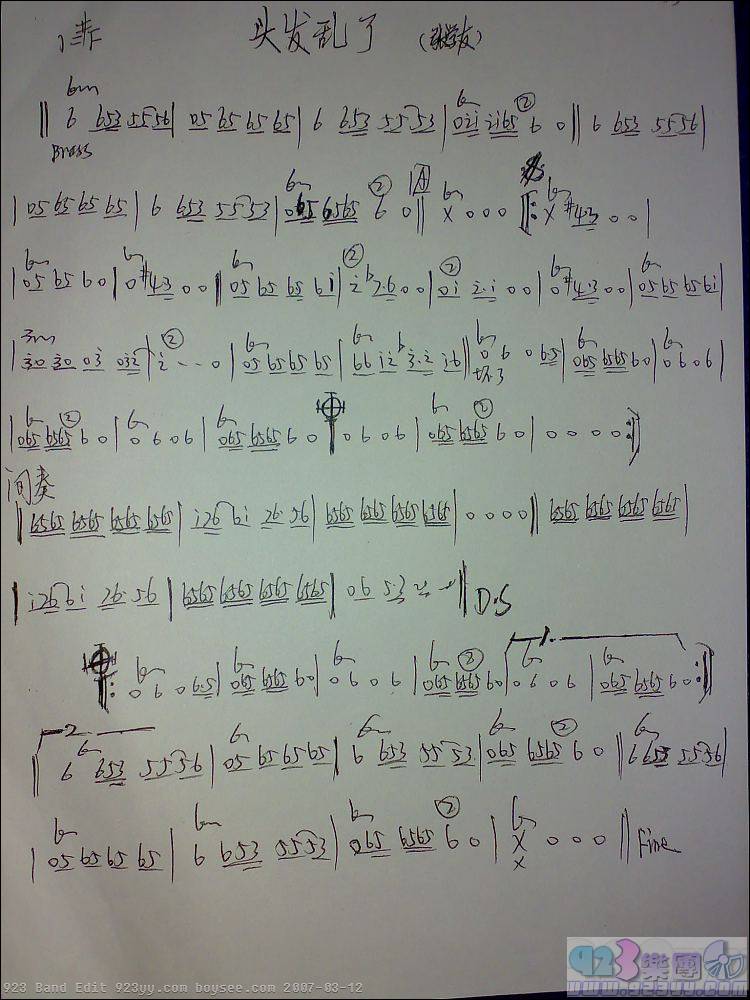 1=F 头发乱了 (张学友)
6m
‖ 6 653 5556 | 05 65 65 65 | 6 653 55 53 | 0ii ii65 6 0 ‖ 6 653 5556 |
Brass
| 05 65 65 65 | 6 653 55 53 | 065 6565 6 0 ‖ A X 0 0 0 ‖: X #4·3 0 0 |
| 05 65 6 0 | 0 #4·3 0 0 ‖ 05 65 65 6i | i b7·6 0 0 | 0i i·i 0 0 | 0 #4·3 0 0 | 05 65 65 6i |
3m
| 30 30 03 032 | i - - 0 | 05 65 65 65 | 66 i2 b3·2 i6 ‖ 0 6 0 6·5 | 065 6565 6 0 | 0 6 0 6 |
坏了
| 065 6565 6 0 | 0 6 0 6 | 065 6565 6 0 | 0 6 0 6 | 065 6565 6 0 | 0 0 0 0 :‖
间奏
‖ 6565 6565 6565 6565 | i26 6i 26·56 | 6565 6565 6565 6565 | 0 0 0 0 ‖ 6565 6565 6565 6565 |
| i26 6i 26·56 ‖ 6565 6565 6565 6565 | 06 5·3 ‖ D.S
‖: 0 6 0 6·5 | 065 6565 6 0 | 0 6 0 6 | 065 6565 6 0 | 1. 0 6 0 6 | 065 6565 6 0 :‖
2.
‖ 6 653 5556 | 05 65 65 65 | 6 653 55 53 | 065 6565 6 0 ‖ 6 653 5556 |
| 05 65 65 65 | 6 653 0553 | 065 6565 6 0 | X 0 0 0 ‖ Fine
X
923樂團
www.923yy.com
923 Band Edit 923yy.com boysee.com 2007-03-12